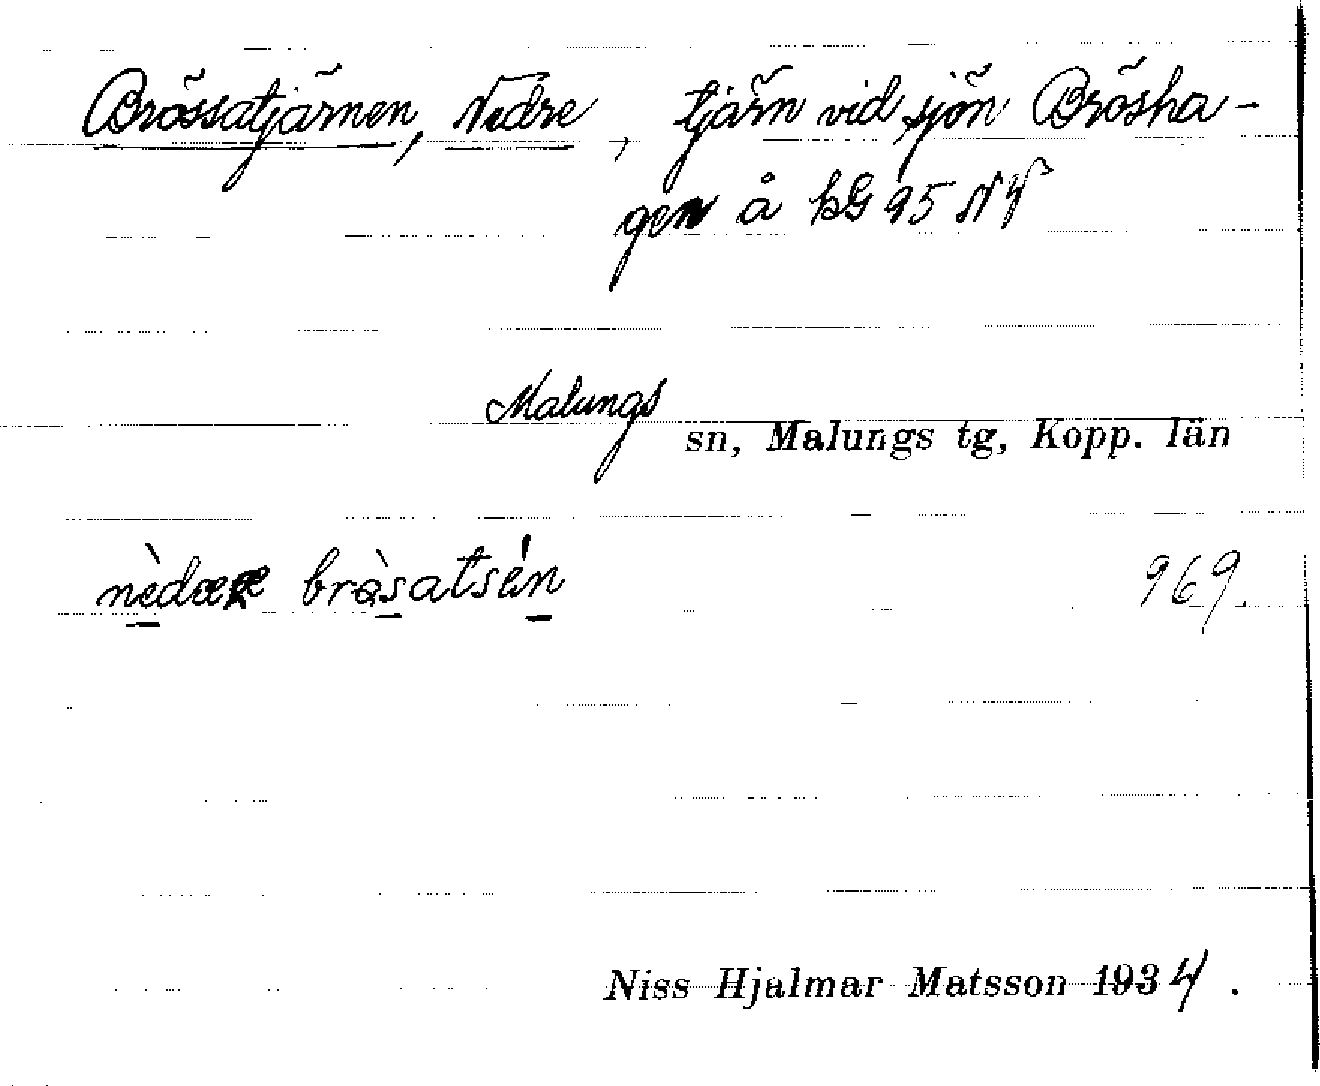 Brössatjärnen, Nedre, tjärn vid sjön Brösha-
gen å kG 95 NV
Malungs
sn, Malungs tg, Kopp. län
brɑ̀satsén 969.
Niss Hjalmar Matsson 1934.